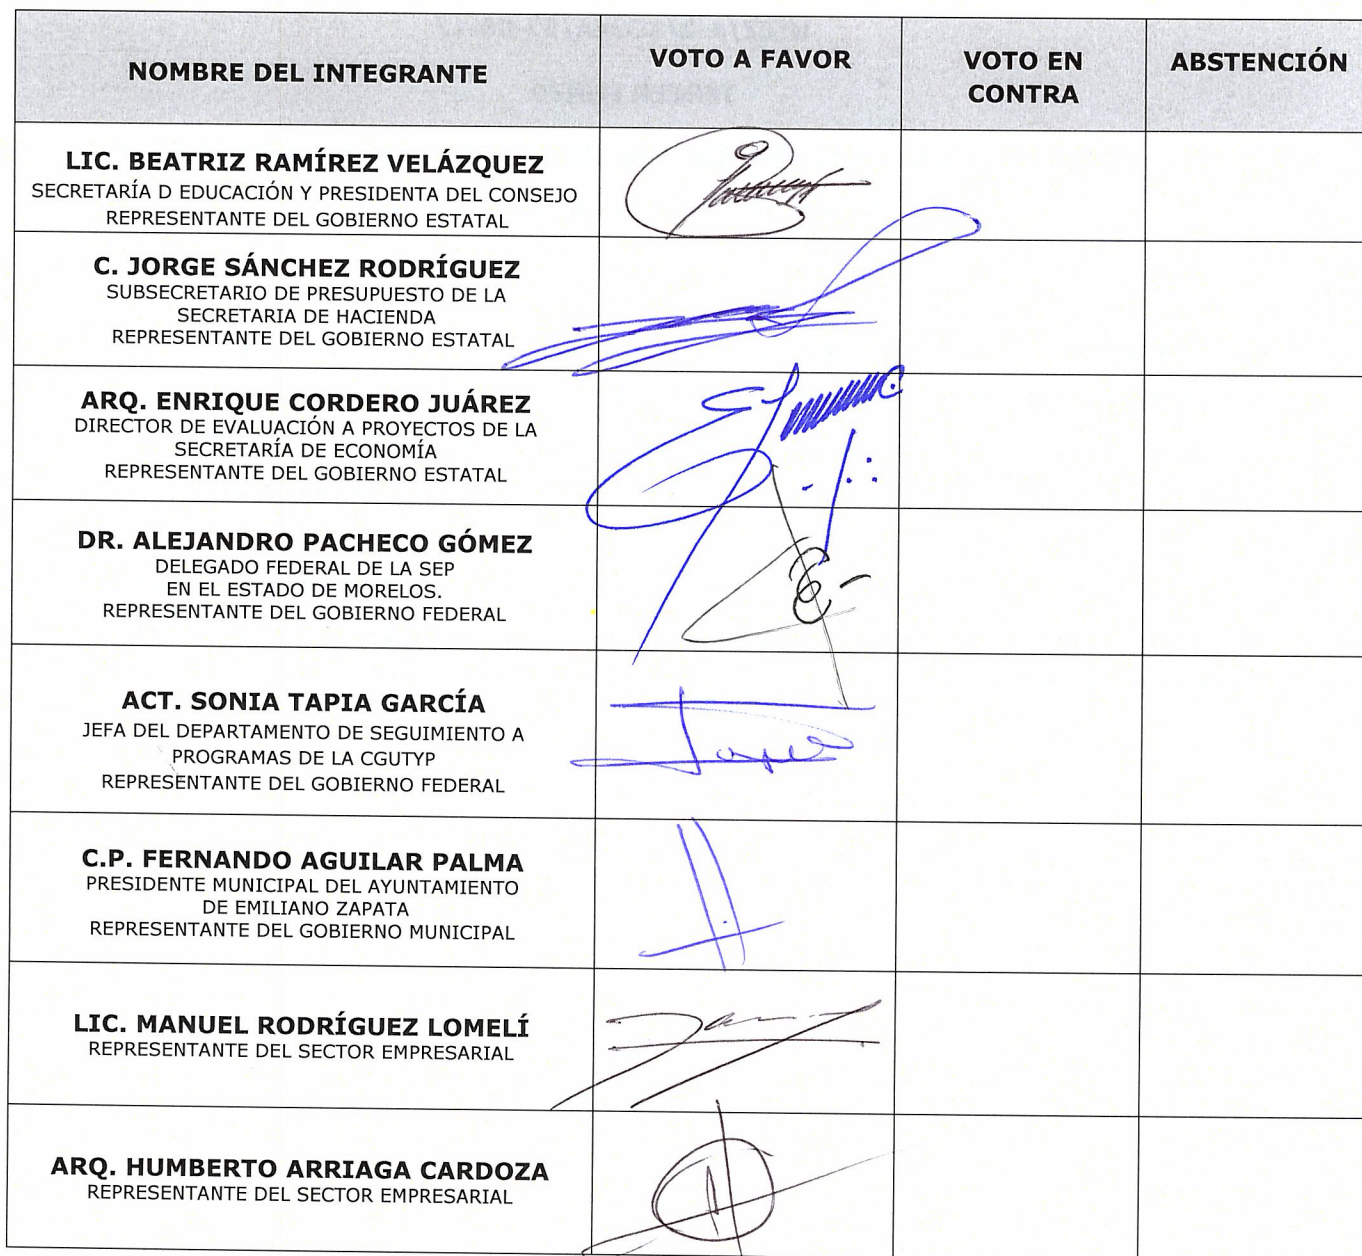 NOMBRE DEL INTEGRANTE
VOTO A FAVOR
VOTO EN
CONTRA
ABSTENCIÓN
LIC. BEATRIZ RAMÍREZ VELÁZQUEZ
SECRETARÍA D EDUCACIÓN Y PRESIDENTA DEL CONSEJO
REPRESENTANTE DEL GOBIERNO ESTATAL
C. JORGE SÁNCHEZ RODRÍGUEZ
SUBSECRETARIO DE PRESUPUESTO DE LA
SECRETARIA DE HACIENDA
REPRESENTANTE DEL GOBIERNO ESTATAL
ARQ. ENRIQUE CORDERO JUÁREZ
DIRECTOR DE EVALUACIÓN A PROYECTOS DE LA
SECRETARÍA DE ECONOMÍA
REPRESENTANTE DEL GOBIERNO ESTATAL
DR. ALEJANDRO PACHECO GÓMEZ
DELEGADO FEDERAL DE LA SEP
EN EL ESTADO DE MORELOS.
REPRESENTANTE DEL GOBIERNO FEDERAL
ACT. SONIA TAPIA GARCÍA
JEFA DEL DEPARTAMENTO DE SEGUIMIENTO A
PROGRAMAS DE LA CGUTYP
REPRESENTANTE DEL GOBIERNO FEDERAL
C.P. FERNANDO AGUILAR PALMA
PRESIDENTE MUNICIPAL DEL AYUNTAMIENTO
DE EMILIANO ZAPATA
REPRESENTANTE DEL GOBIERNO MUNICIPAL
LIC. MANUEL RODRÍGUEZ LOMELÍ
REPRESENTANTE DEL SECTOR EMPRESARIAL
ARQ. HUMBERTO ARRIAGA CARDOZA
REPRESENTANTE DEL SECTOR EMPRESARIAL